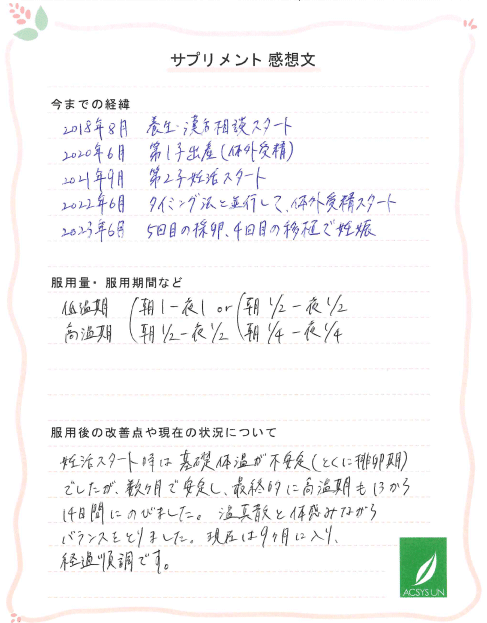 サプリメント 感想文
今までの経緯
2018年8月 養生・漢方相談スタート
2020年6月 第1子出産(体外受精)
2021年9月 第2子妊活スタート
2022年6月 タイミング法と並行して、体外受精スタート
2023年6月 5回目の採卵、4回目の移植で妊娠
服用量・服用期間など
低温期 (朝1ー夜1 or (朝 1/2 ー夜 1/2
高温期 (朝 1/2 ー夜 1/2 (朝 1/4 ー 夜 1/4
服用後の改善点や現在の状況について
妊活スタート時は基礎体温が不安定(とくに排卵期)
でしたが、数ヶ月で安定し、最終的に高温期も13から
14日間にのびました。温真散と体感みながら
バランスをとりました。現在は9ヶ月に入り、
経過順調です。
ACSYSUN